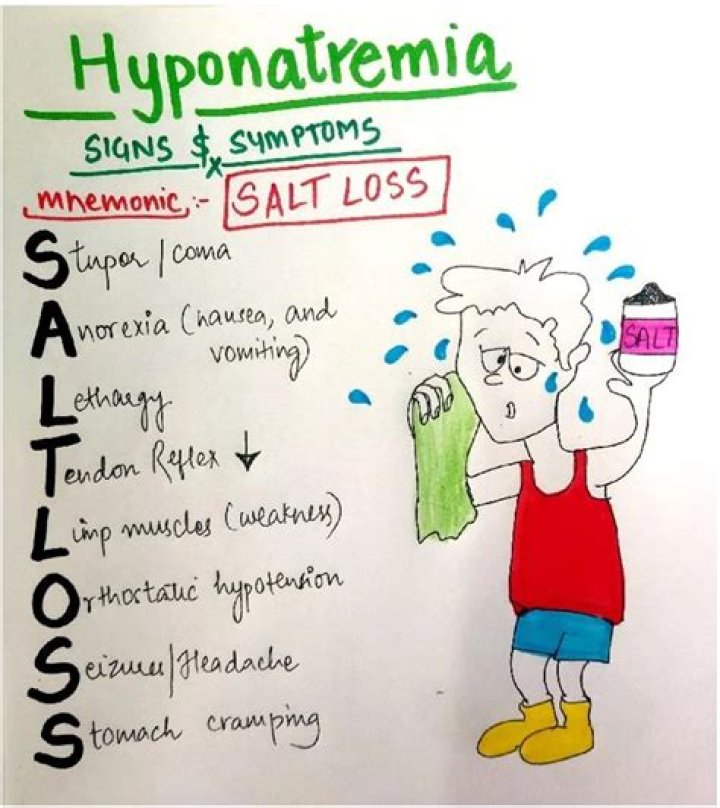 Hyponatremia
SIGNS $x SYMPTOMS
mnemonic :- SALT LOSS
Stupor / coma
Anorexia (nausea, and
vomiting)
Lethargy
Tendon Reflex ↓
Limp muscles (weakness)
Orthostatic hypotension
Seizures/Headache
Stomach cramping
SALT